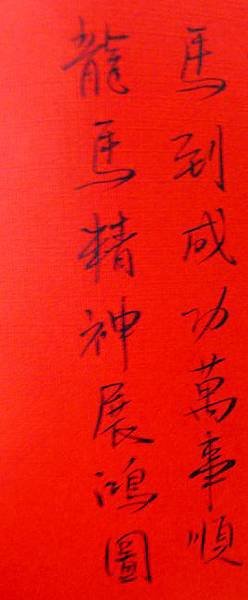 馬到成功萬事順
龍馬精神展鴻圖